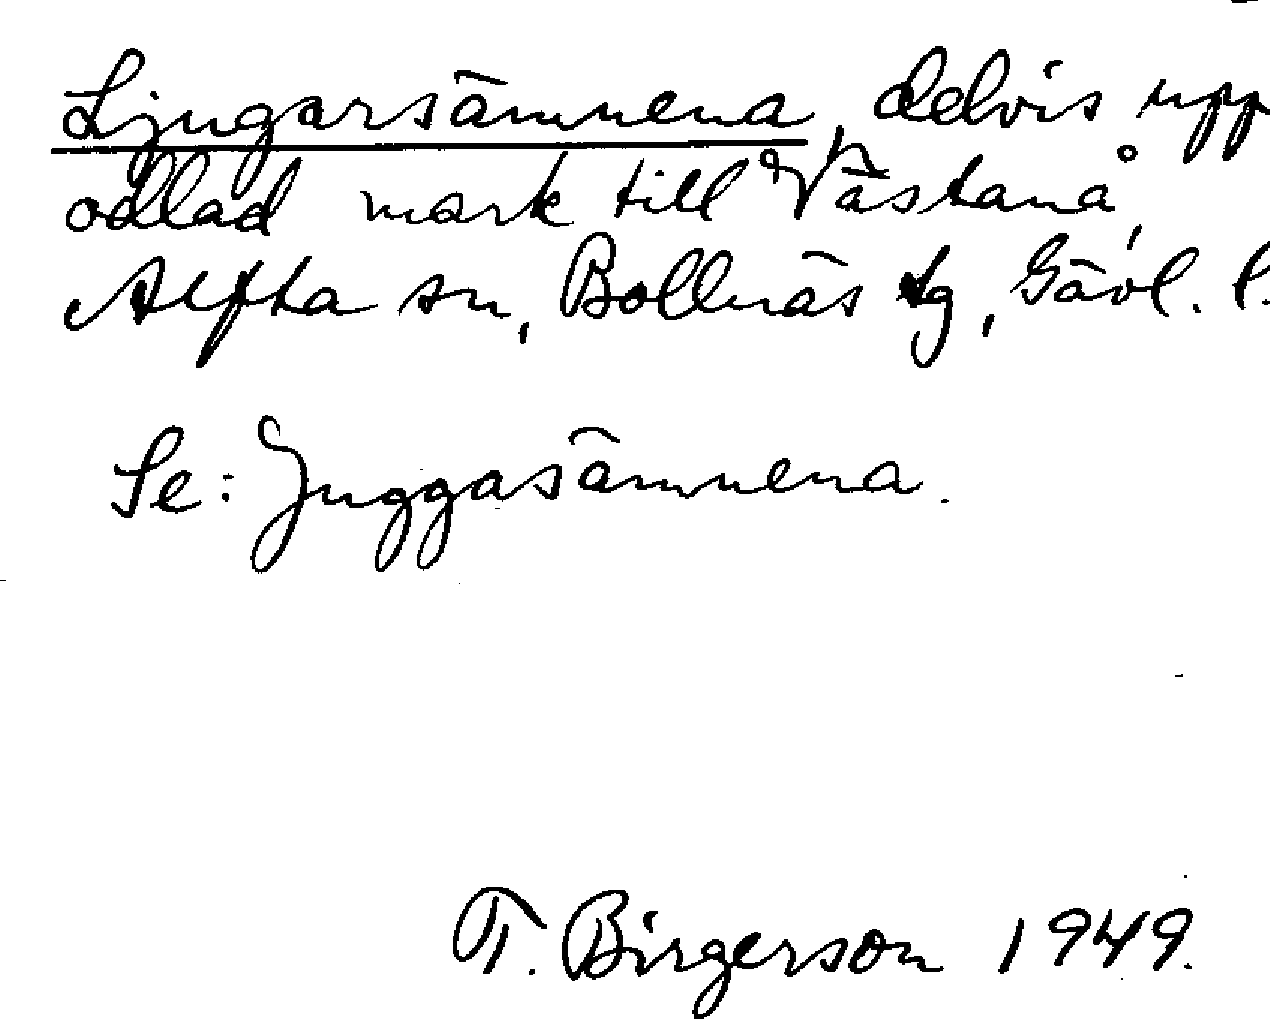 Ljugarsämnena, delvis upp
odlad mark till Västanå,
Alfta sn, Bollnäs tg, Gävl. l.
Se: Juggasämnena.
T. Birgerson 1949.